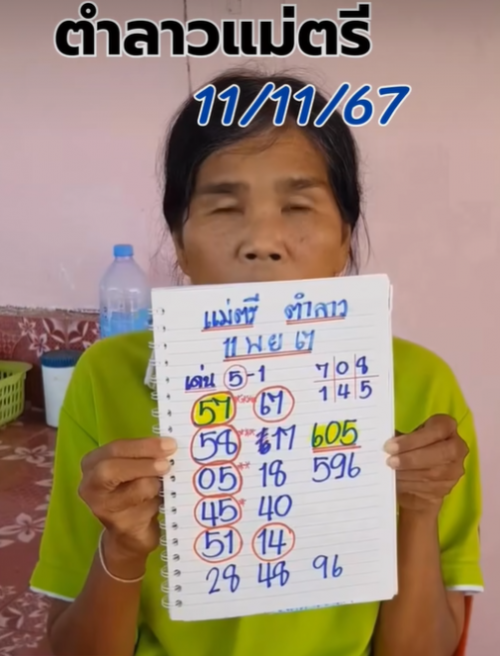 ตำลาวแม่ตรี
11/11/67
แม่ตรี ตำลาว
11 พย 67
เด่น 5-1
7 0 8
1 4 5
57 67
58 17 605
05 18 596
45 40
51 14
28 48 96